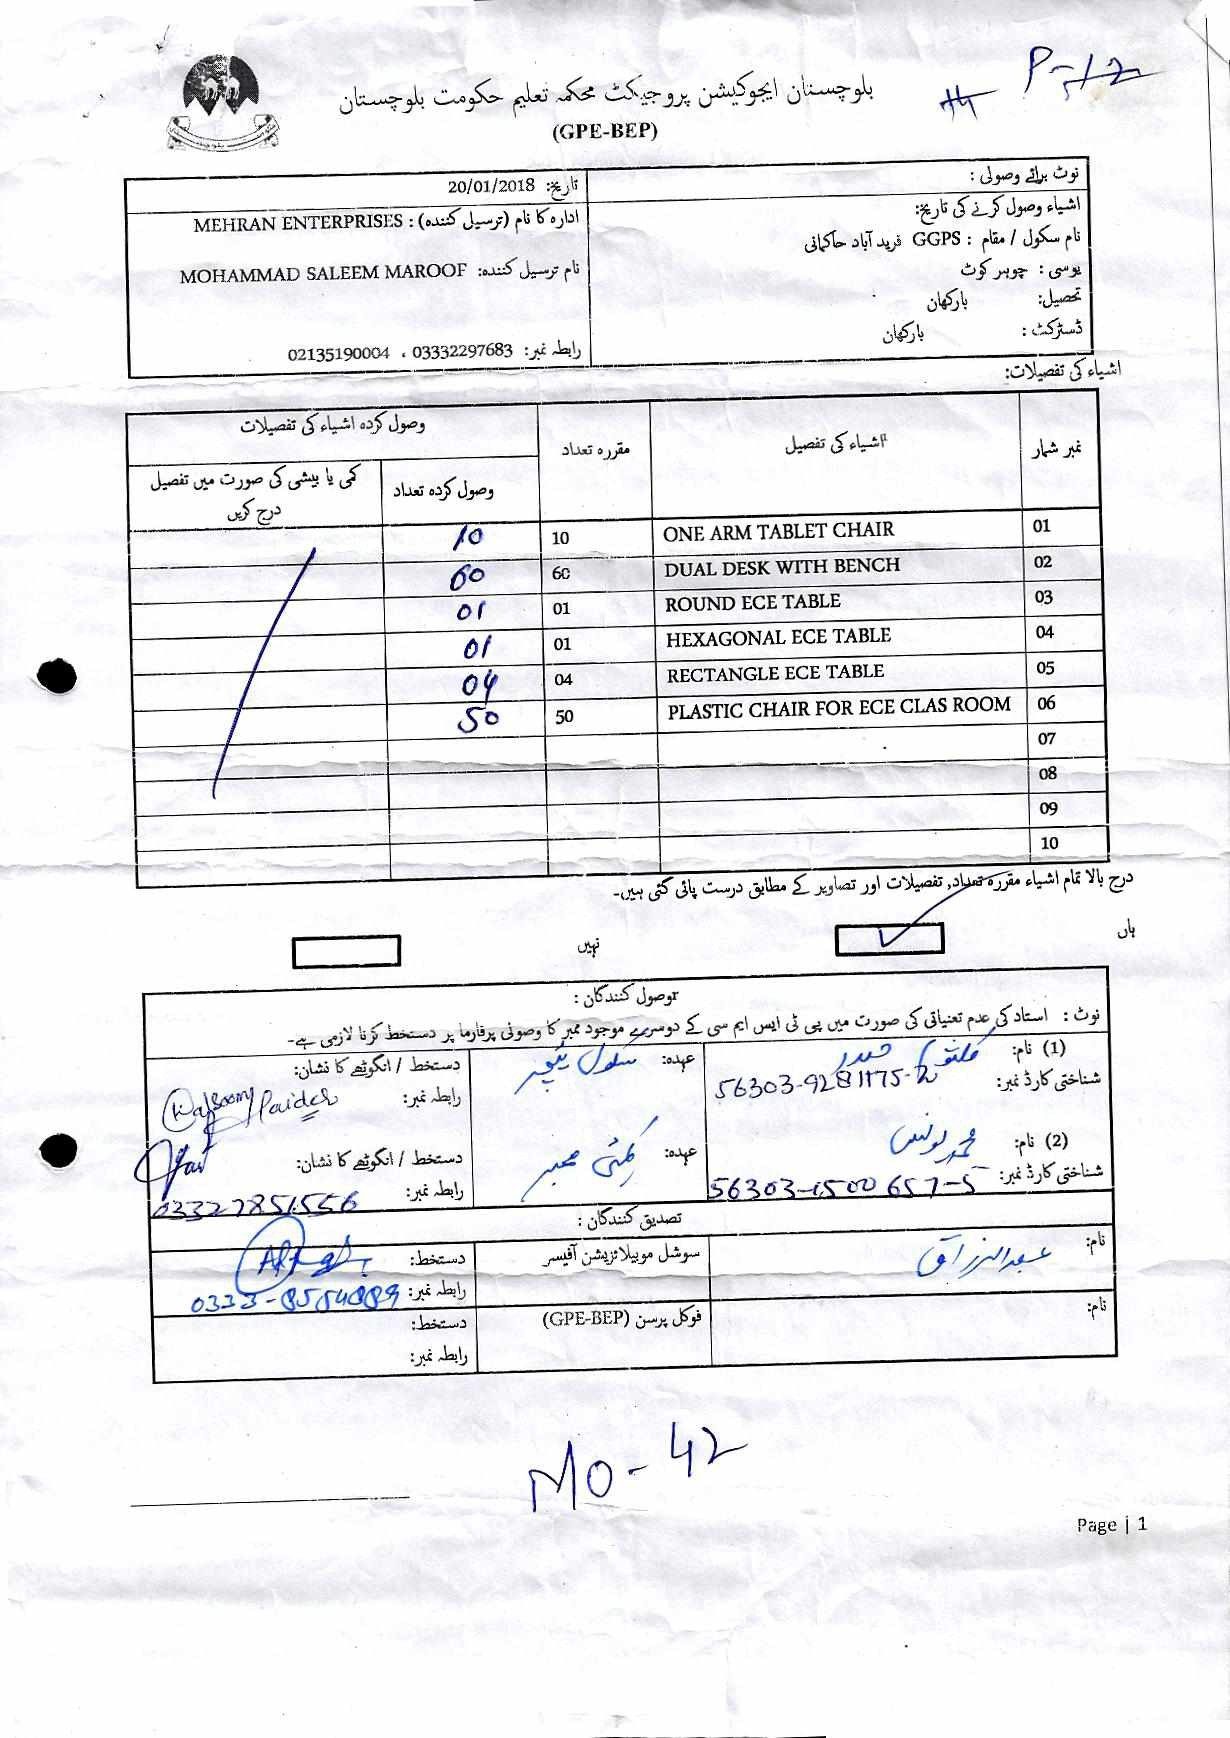 P-12
بلوچستان ایجوکیشن پروجیکٹ محکمہ تعلیم حکومت بلوچستان
(GPE-BEP)
نوٹ برائے وصولی :
اشیاء وصول کرنے کی تاریخ:
نام سکول / مقام : GGPS فرید آباد حاکمانی
یوسی : چوہر کوٹ
تحصیل: بارکھان
ڈسٹرکٹ : بارکھان
تاریخ: 20/01/2018
ادارہ کا نام (ترسیل کنندہ) : MEHRAN ENTERPRISES
نام ترسیل کنندہ: MOHAMMAD SALEEM MAROOF
رابطہ نمبر: 03332297683 ، 02135190004
اشیاء کی تفصیلات:
نمبر شمار اشیاء کی تفصیل مقررہ تعداد وصول کردہ اشیاء کی تفصیلات
وصول کردہ تعداد کمی یا بیشی کی صورت میں تفصیل درج کریں
01 ONE ARM TABLET CHAIR 10 10
02 DUAL DESK WITH BENCH 60 60
03 ROUND ECE TABLE 01 01
04 HEXAGONAL ECE TABLE 01 01
05 RECTANGLE ECE TABLE 04 04
06 PLASTIC CHAIR FOR ECE CLAS ROOM 50 50
07
08
09
10
درج بالا تمام اشیاء مقررہ تعداد, تفصیلات اور تصاویر کے مطابق درست پائی گئی ہیں۔
ہاں نہیں
وصول کنندگان :
نوٹ : استاد کی عدم تعنیاتی کی صورت میں پی ٹی ایس ایم سی کے دوسرے موجود ممبر کا وصولی پرفارما پر دستخط کرنا لازمی ہے۔
(1) نام: کلثوم حیدر عہدہ: سکول ٹیچر دستخط / انگوٹھے کا نشان:
شناختی کارڈ نمبر: 56303-9281175-2 رابطہ نمبر:
Kalsoom Haider
(2) نام: محمد یونس عہدہ: کمیٹی ممبر دستخط / انگوٹھے کا نشان:
شناختی کارڈ نمبر: 56303-1500657-5 رابطہ نمبر: 03327851556
تصدیق کنندگان :
نام: عبدالرزاق سوشل موبیلائزیشن آفیسر دستخط:
رابطہ نمبر: 0333-8584889
نام: فوکل پرسن (GPE-BEP) دستخط:
رابطہ نمبر:
MO-42
Page | 1